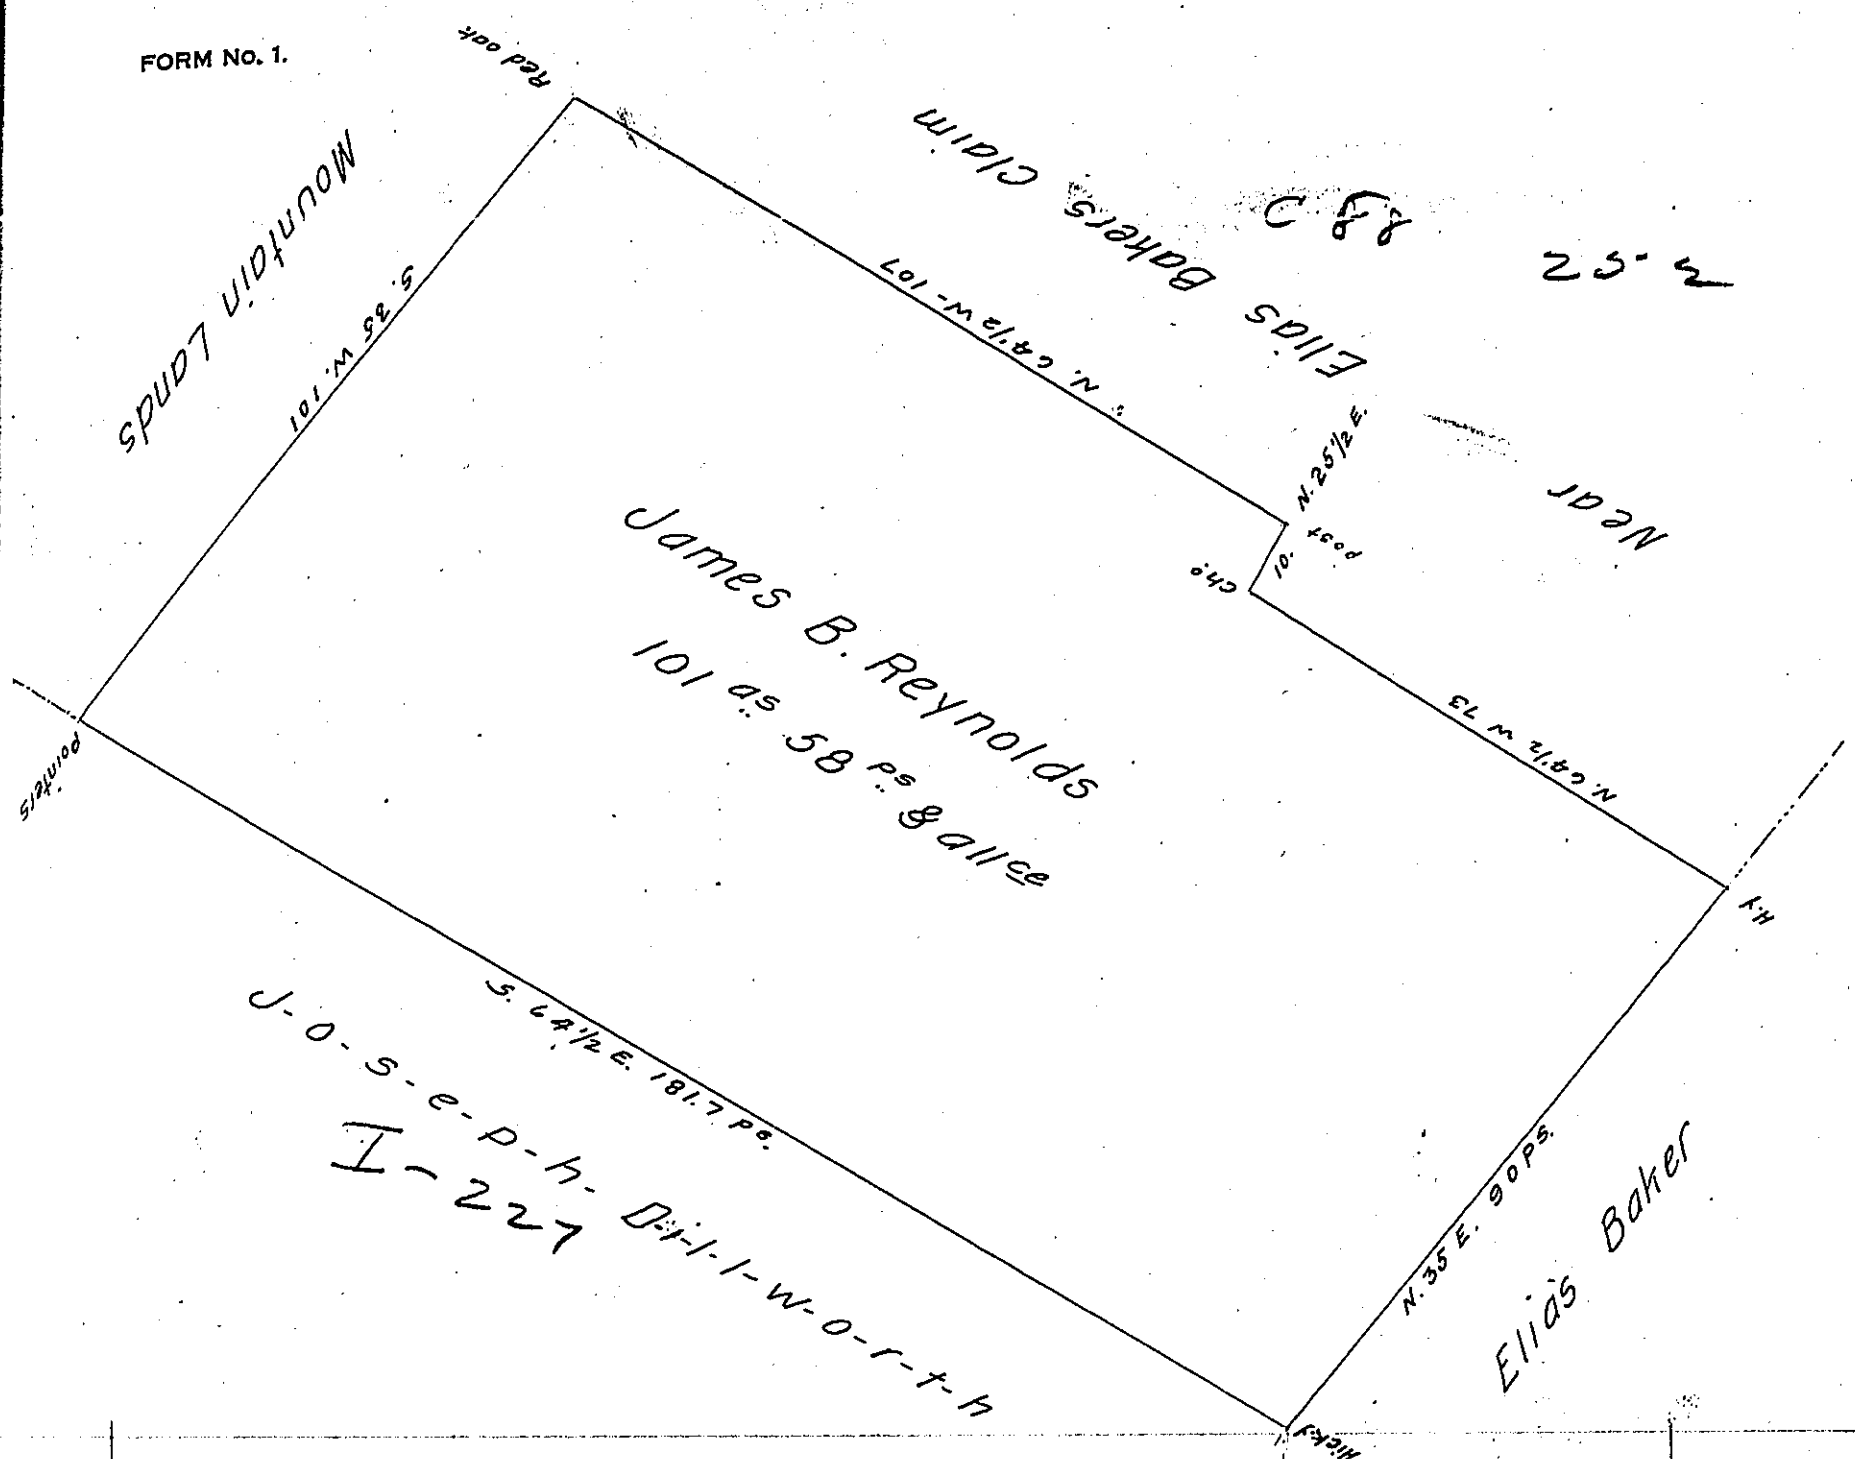 FORM No. 1.
Red oak
Mountain Lands
S. 35 W. 101
Elias Bakers Claim
C 88
25-2
N. 64 1/2 W - 107
N. 25 1/2 E.
10.
post
Ch.o
Near
James B. Reynolds
101 as 58 ps & allce
N. 64 1/2 W 73
H.y
Pointers
S. 64 1/2 E. 181.7 Ps.
J-o-s-e-p-h- D-i-l-l-w-o-r-t-h
I-227
N. 35 E. 90 PS.
Elias Baker
Hicky